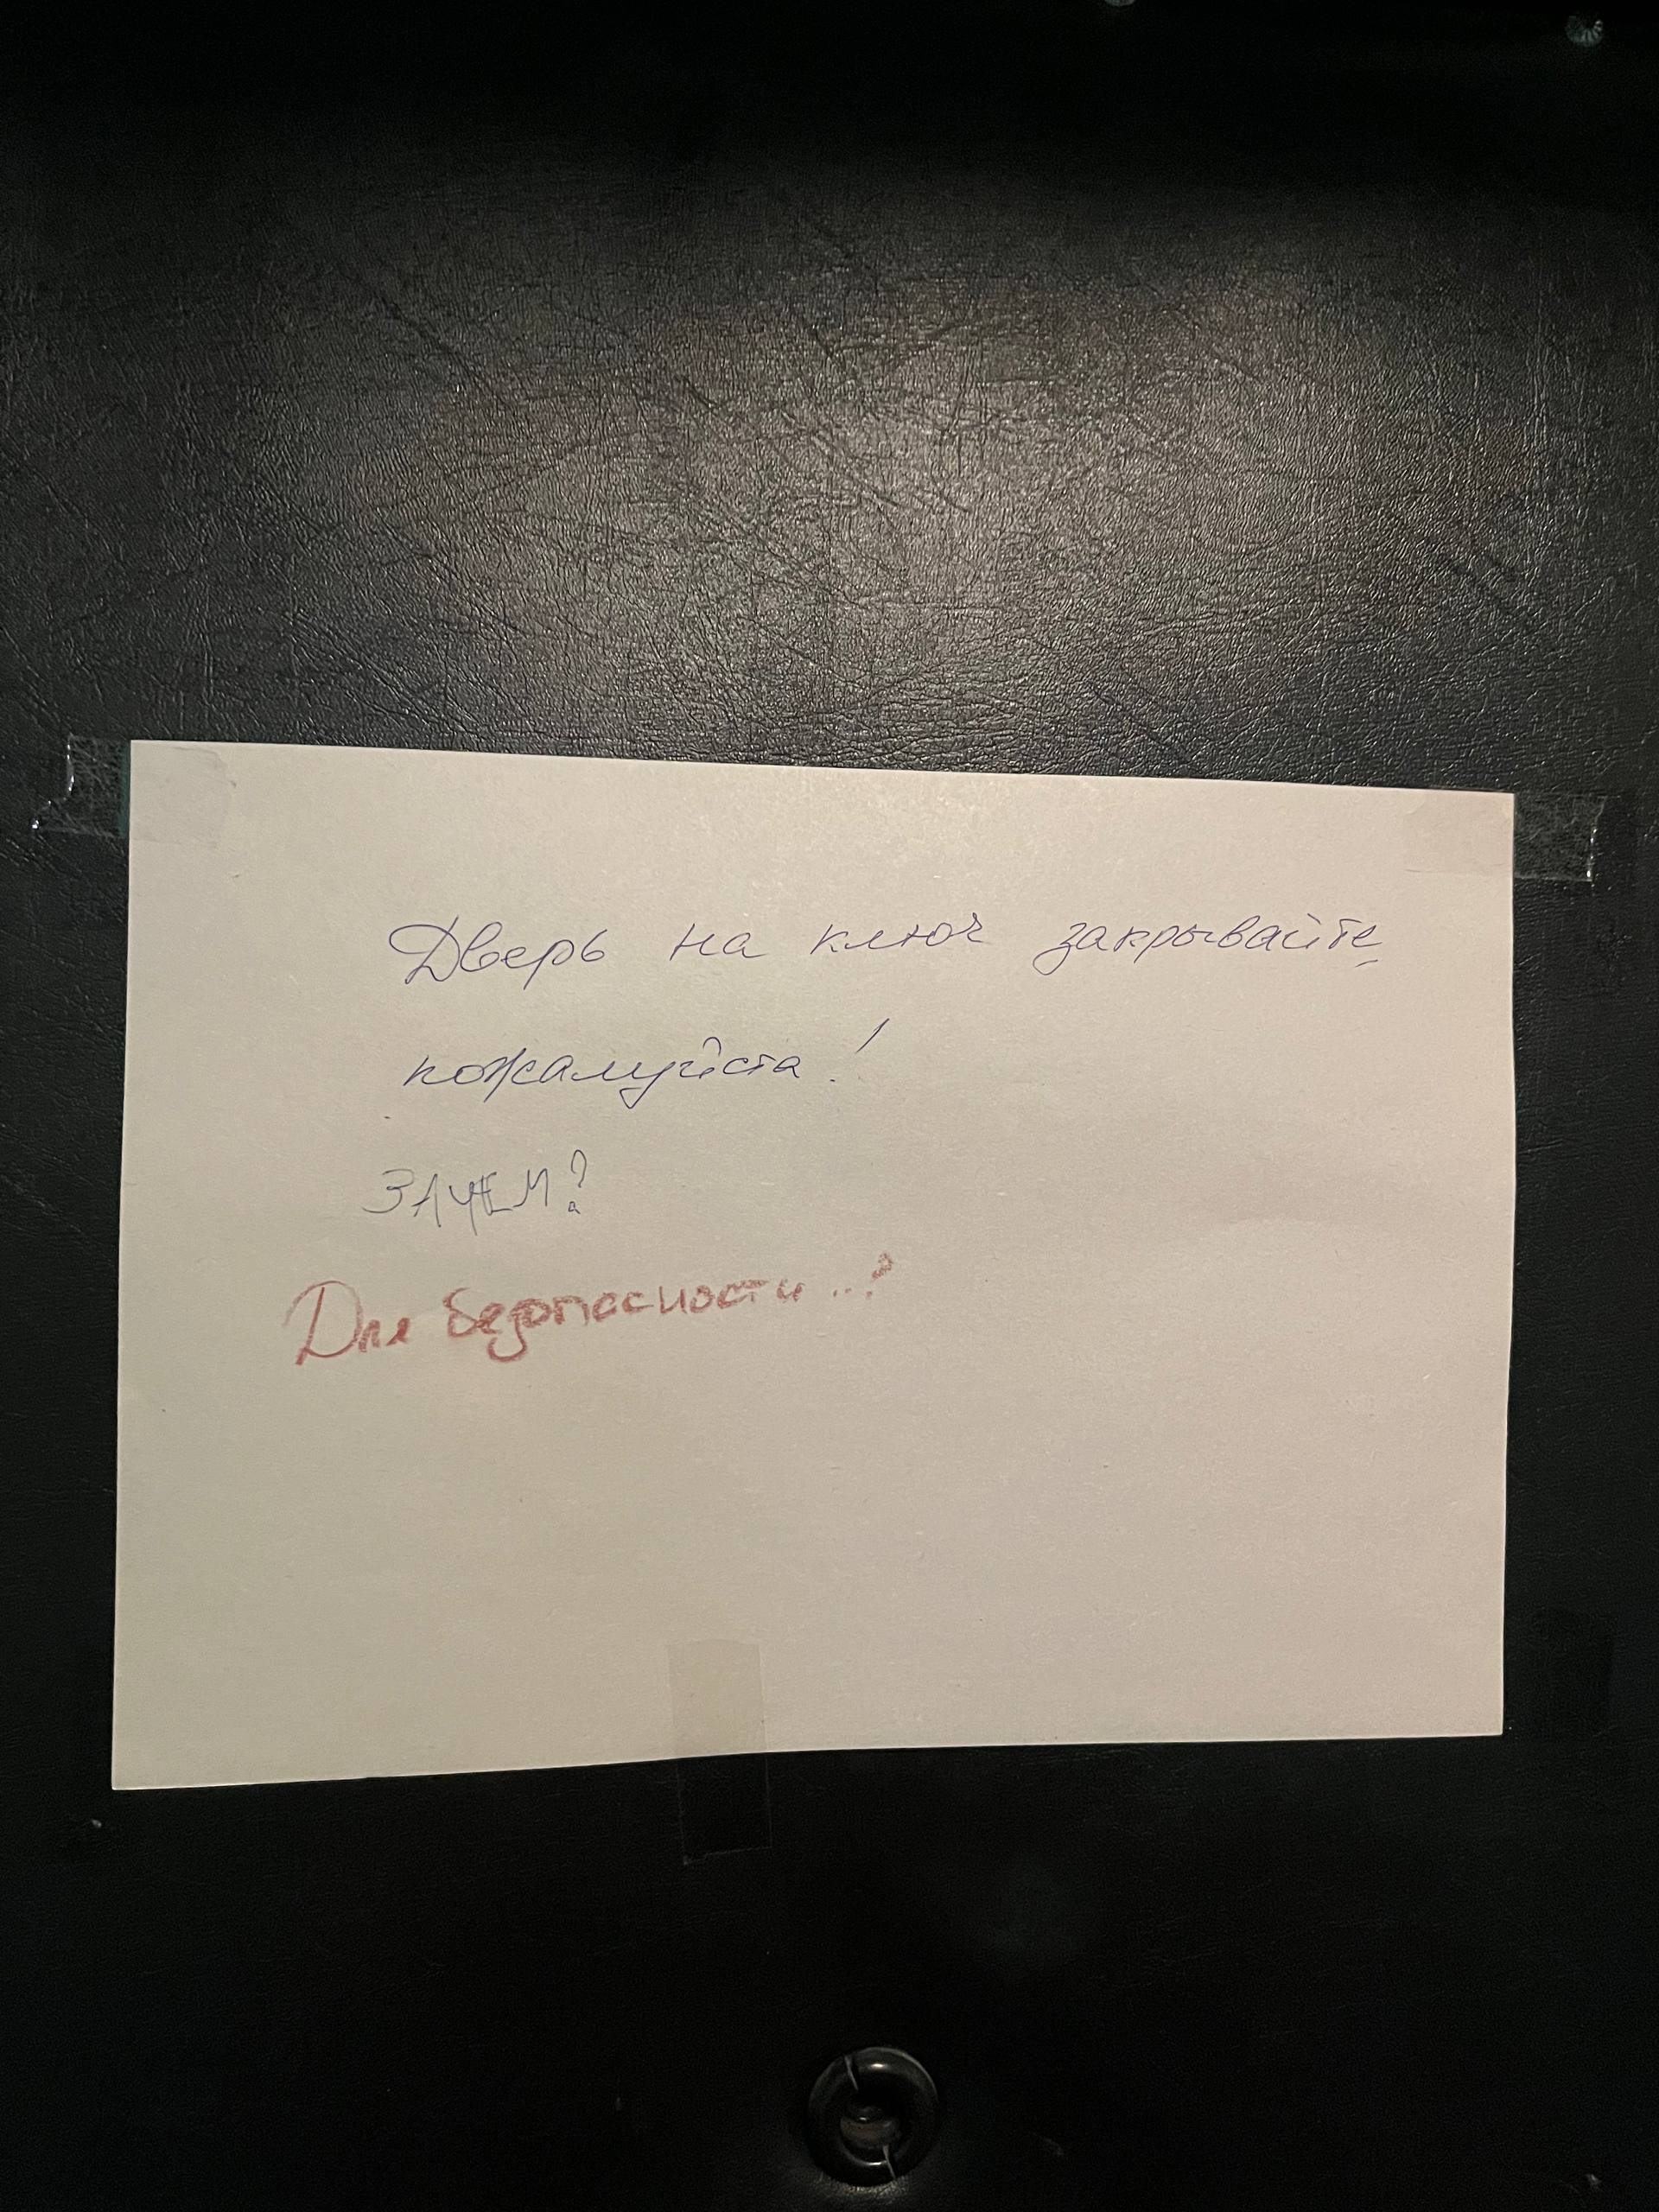 Дверь на ключ закрывайте,
пожалуйста!
ЗАЧЕМ?
Для безопасности..?